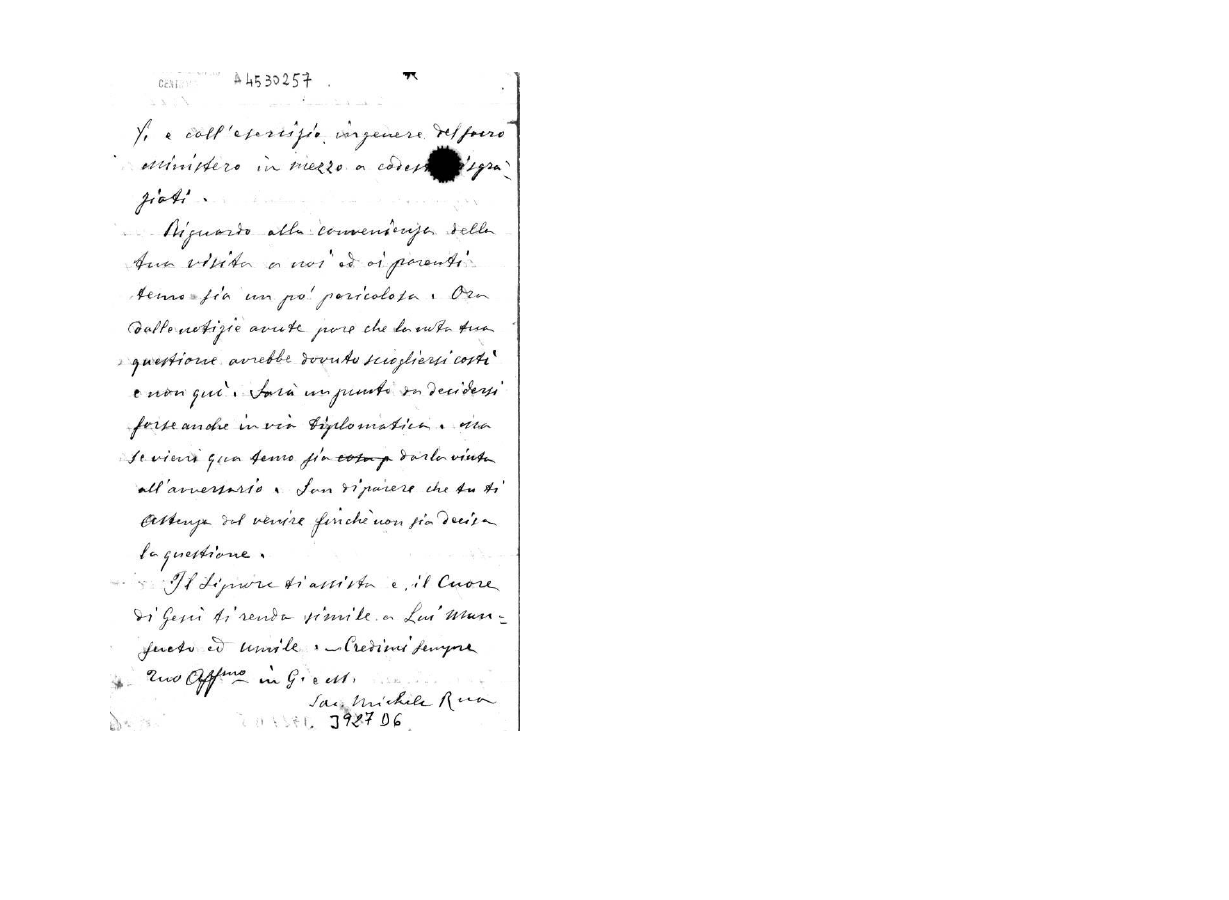 A4530257
e coll'esercizio in genere del sacro
ministero in mezzo a codesti disgra-
ziati.
Riguardo alla convenienza della
tua visita a noi ed ai parenti
temo sia un po' pericolosa. Ora
dalle notizie avute pare che la nota tua
questione avrebbe dovuto sciogliersi costì
e non quì. Sarà un punto da decidersi
forse anche in via diplomatica. Ma
se vieni qua temo sia cosa p darla vinta
all'avversario. Son di parere che tu ti
astenga dal venire finchè non sia decisa
la questione.
Il Signore ti assista e, il Cuore
di Gesù ti renda simile a Lui Man-
sueto ed umile. – Credimi sempre
Tuo Affmo in G. e M.
Sac. Michele Rua
3927 D6